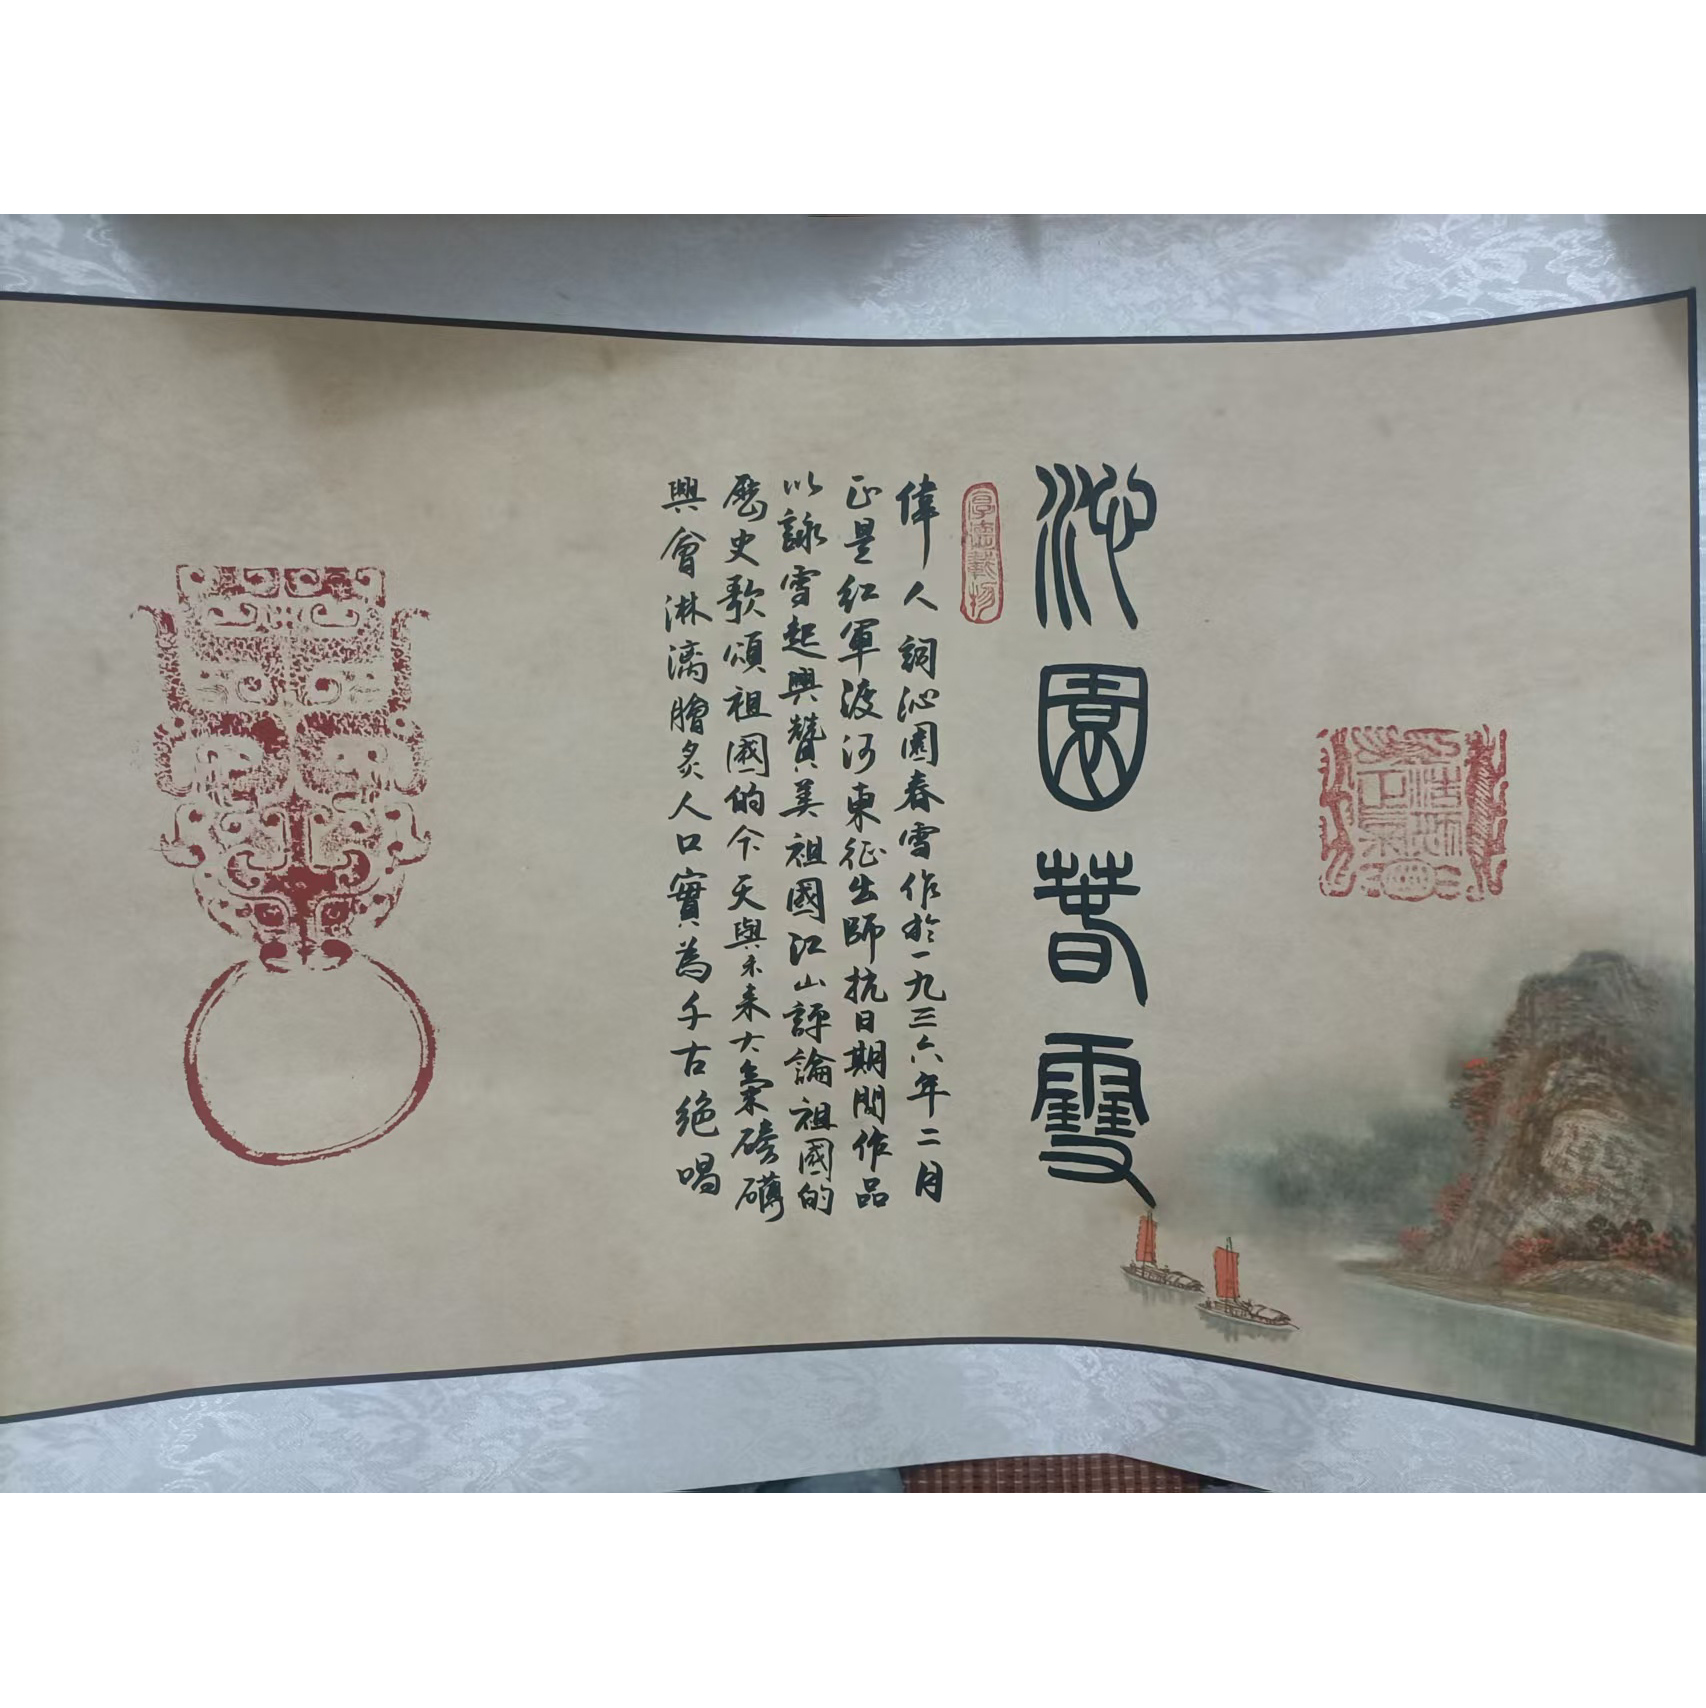 沁園春雪
厚德載物
偉人詞沁園春雪作於一九三六年二月
正是紅軍渡河東征出師抗日期間作品
以詠雪起興贊美祖國江山評論祖國的
歷史歌頌祖國的今天與未來大氣磅礴
興會淋漓膾炙人口實為千古絕唱